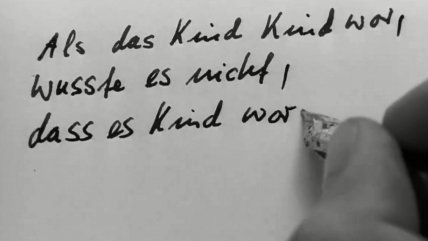 Als das Kind Kind war,
wusste es nicht,
dass es Kind war